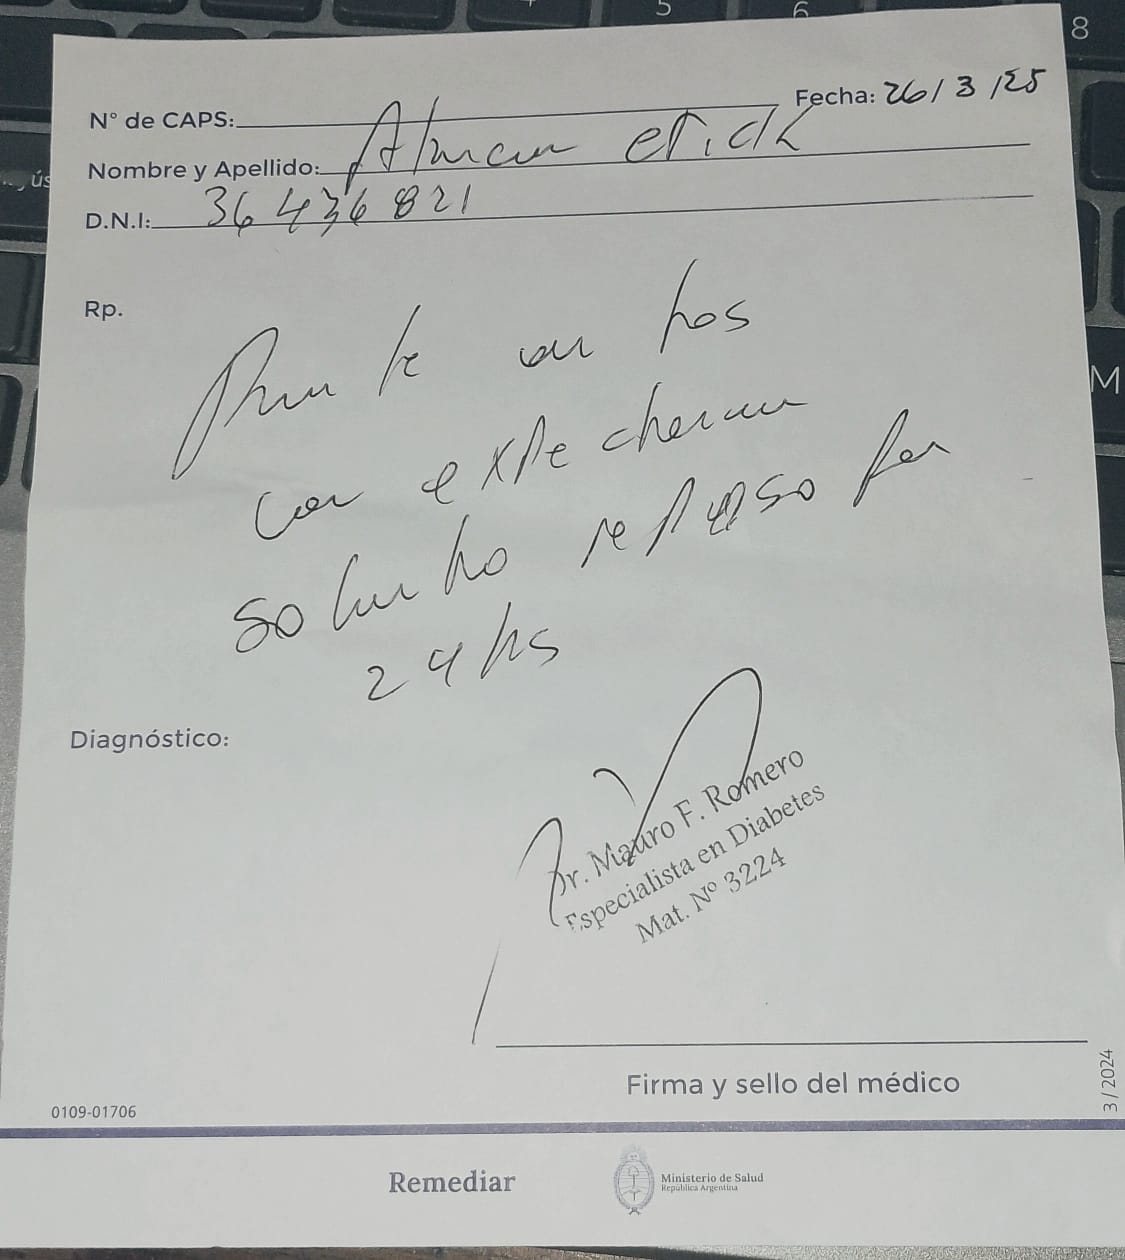 N° de CAPS:
Fecha: 26/3/25
Nombre y Apellido: Erick
D.N.I: 36436821
Rp.
con tos
con
solicito reposo por
24 hs
Diagnóstico:
Dr. Mauro F. Romero
Especialista en Diabetes
Mat. Nº 3224
Firma y sello del médico
3 / 2024
0109-01706
Remediar
Ministerio de Salud
República Argentina
5
6
8
M
ús